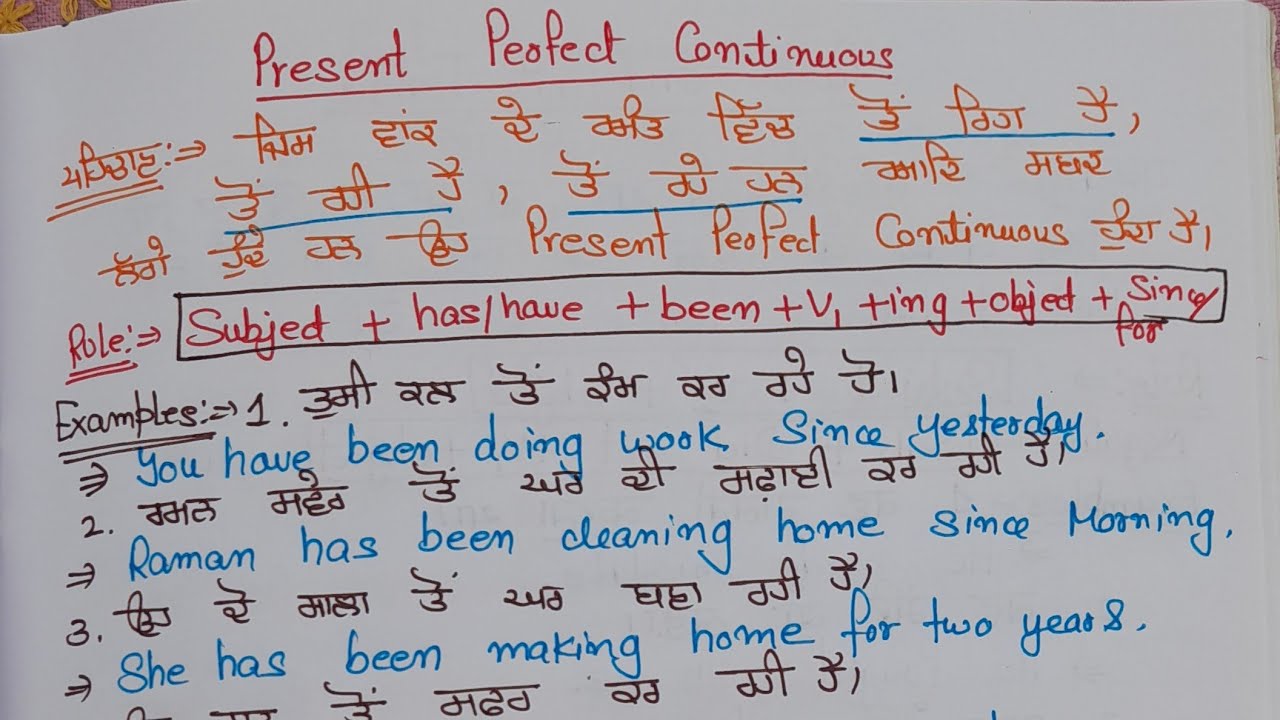 Present Perfect Continuous
ਪਹਿਚਾਣ:⇒ ਜਿਸ ਵਾਕ ਦੇ ਅੰਤ ਵਿੱਚ ਤੋਂ ਰਿਹਾ ਹੈ,
ਤੋਂ ਰਹੀ ਹੈ, ਤੋਂ ਰਹੇ ਹਨ ਆਦਿ ਸ਼ਬਦ
ਲੱਗੇ ਹੁੰਦੇ ਹਨ ਉਹ Present Perfect Continuous ਹੁੰਦਾ ਹੈ।
Role:⇒ Subject + has/have + been + V₁ + ing + object + Since/
for
Examples:⇒ 1. ਤੁਸੀ ਕਲ ਤੋਂ ਕੰਮ ਕਰ ਰਹੇ ਹੋ।
⇒ You have been doing work Since yesterday.
2. ਰਮਨ ਸਵੇਰ ਤੋਂ ਘਰ ਦੀ ਸਫ਼ਾਈ ਕਰ ਰਹੀ ਹੈ।
⇒ Raman has been cleaning home since Morning.
3. ਉਹ ਦੋ ਸਾਲਾ ਤੋਂ ਘਰ ਬਣਾ ਰਹੀ ਹੈ।
⇒ She has been making home for two years.
ਤੋਂ ਸਫਰ ਕਰ ਰਹੀ ਹੈ।